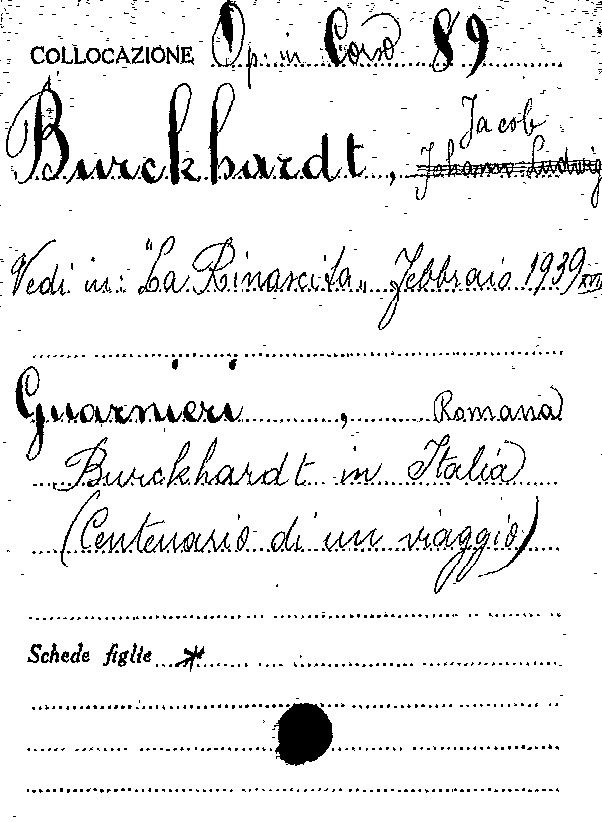 COLLOCAZIONE Op. in Corso 89
Jacob
Burckhardt, Johann Ludwig
Vedi in: "La Rinascita„ Febbraio 1939 XVII
Guarnieri, Romana
Burckhardt in Italia
(Centenario di un viaggio)
Schede figlie *